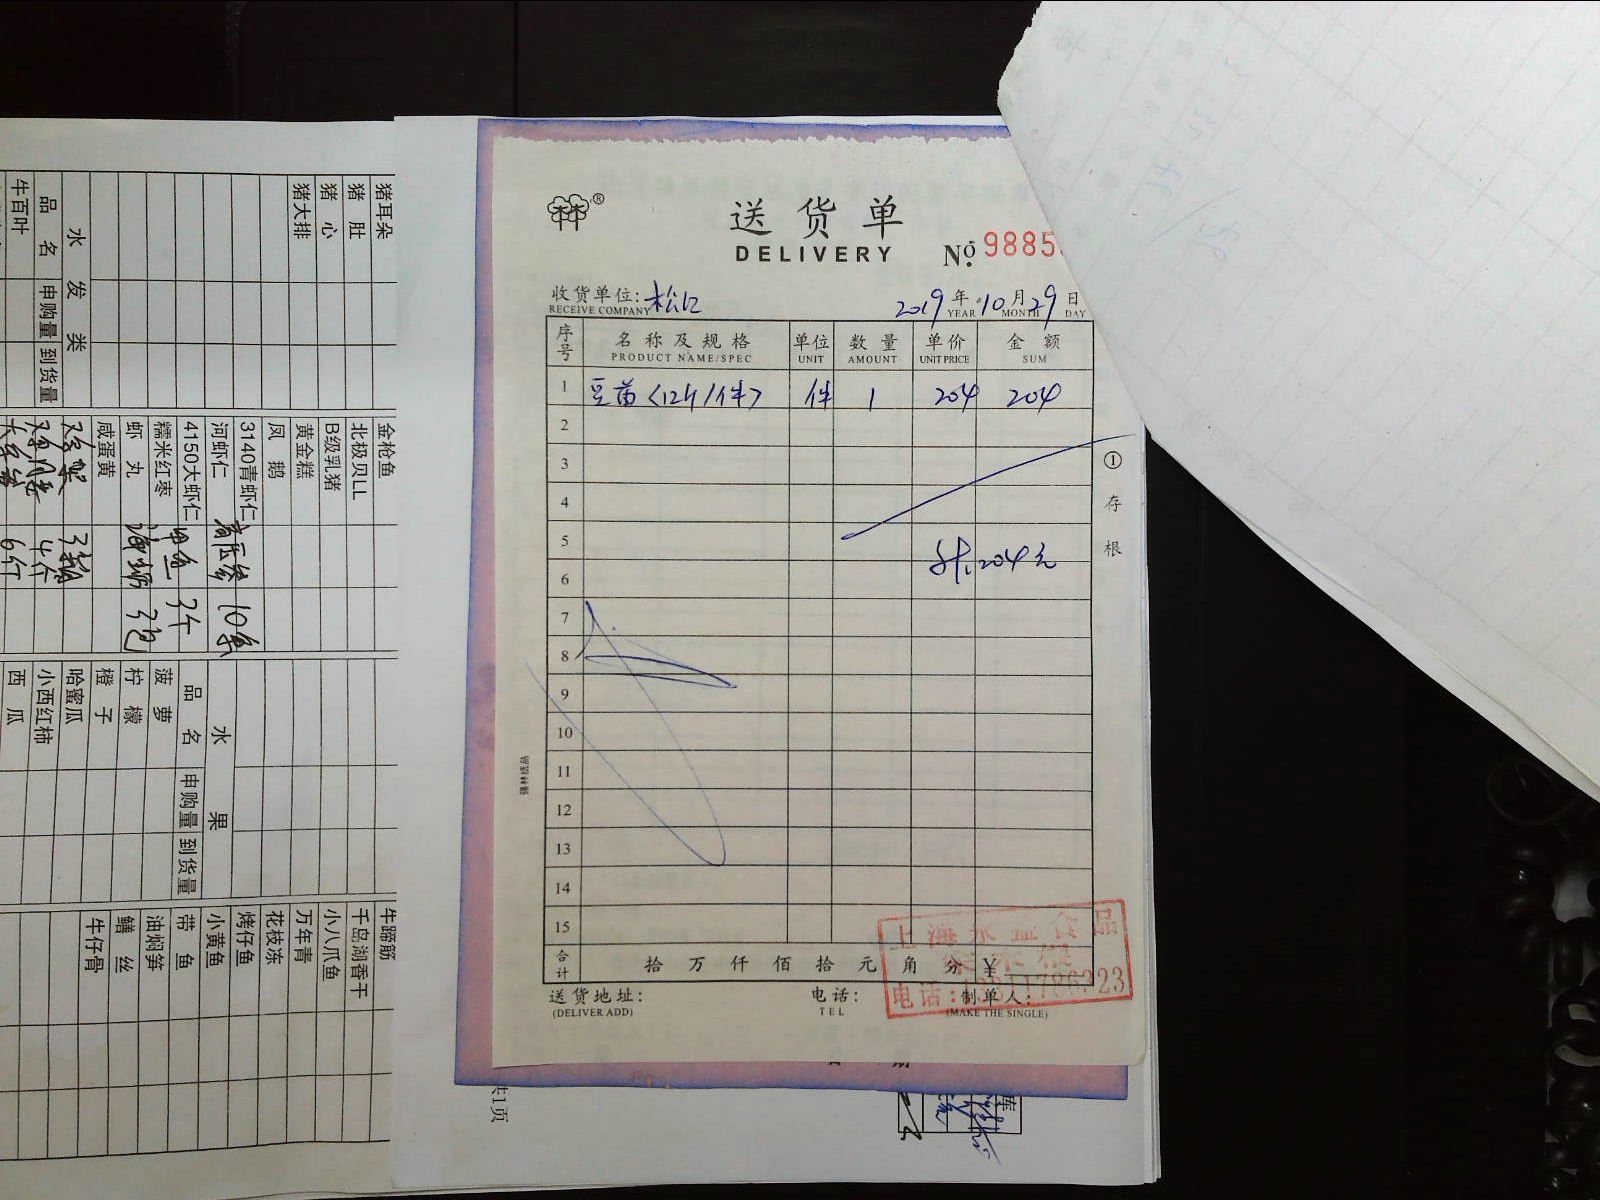 送货单
DELIVERY
№ 9885
收货单位: 松江
RECEIVE COMPANY
2019 年 10 月 29 日
YEAR MONTH DAY
序号 名称及规格 单位 数量 单价 金额
PRODUCT NAME/SPEC UNIT AMOUNT UNIT PRICE SUM
1 豆苗<12斤/件> 件 1 204 204
2
3
4
5
计: 204元
6
7
8
9
10
11
12
13
14
15
合计 拾 万 仟 佰 拾 元 角 分 ¥
送货地址: 电话: 制单人:
(DELIVER ADD) TEL (MAKE THE SINGLE)
① 存根
上海永益食品
电话:
猪耳朵
猪肚
猪心
猪大排
水发类
品名 申购量 到货量
牛百叶
金枪鱼
北极贝LL
B级乳猪
黄金糕
凤鹅
3140青虾仁
河虾仁
4150大虾仁
糯米红枣
虾丸
咸蛋黄
10条
3包
4斤
6斤
水果
品名 申购量 到货量
菠萝
柠檬
橙子
哈蜜瓜
小西红柿
西瓜
牛蹄筋
千岛湖香干
小八爪鱼
万年青
花枝冻
烤仔鱼
小黄鱼
带鱼
油焖笋
鳝丝
牛仔骨
共1页